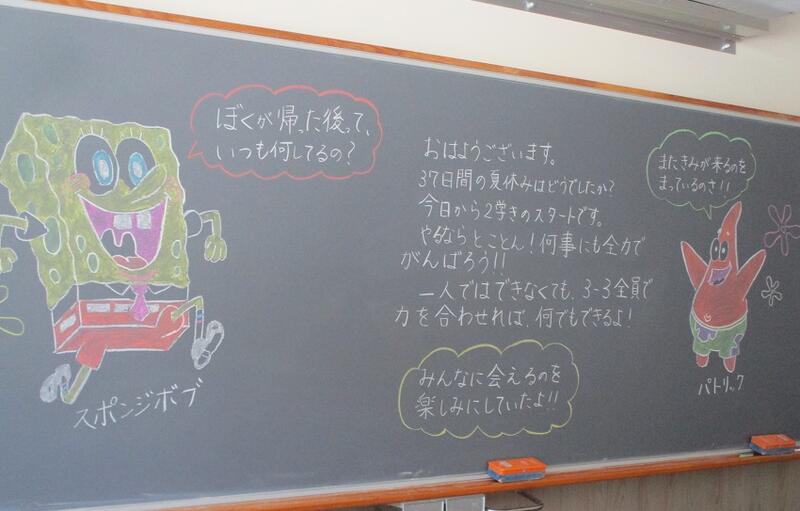 ぼくが帰った後って、
いつも何してるの?
スポンジボブ
おはようございます。
37日間の夏休みはどうでしたか?
今日から2学きのスタートです。
やるならとことん!何事にも全力で
がんばろう!!
一人ではできなくても、3-3全員で
力を合わせれば、何でもできるよ!
みんなに会えるのを
楽しみにしていたよ!!
またきみが来るのを
まっているのさ!!
パトリック